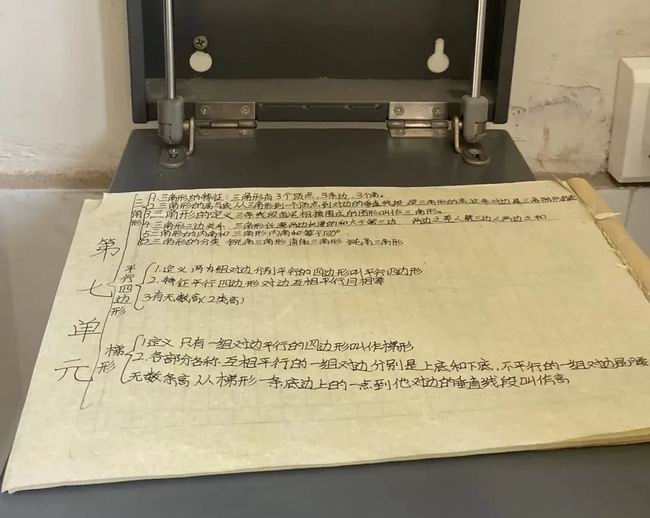 第七单元
三角形
1.三角形的特征:三角形有3个顶点,3条边,3个角。
2.三角形的高与底 从三角形到一个顶点到对边的垂直线段 是三角形的高,这条对边是三角形的底
3.三角形的定义 3条线段首尾相接围成的图形叫作三角形。
4.三角形三边关系 三角形任意两边长度的和大于第三边 两边之差<第三边<两边之和
5.三角形的内角和 三角形内角和等于180°
6.三角形的分类 锐角三角形 直角三角形 钝角三角形
平行四边形
1.定义 两组对边分别平行的四边形叫平行四边形
2.特征平行四边形对边互相平行且相等
3.有无数高(2类高)
梯形
1.定义 只有一组对边平行的四边形叫作梯形
2.各部分名称.互相平行的一组对边分别是上底和下底,不平行的一组对边是
无数条高 从梯形一条底边上的一点到他对边的垂直线段叫作高